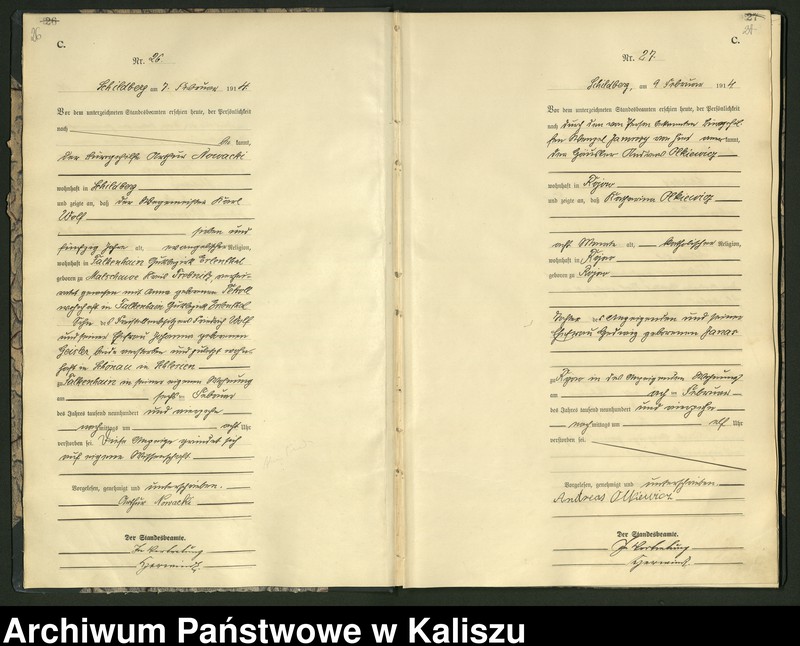 26
26
C.
Nr. 26
Schildberg am 7. Februar 1914
Vor dem unterzeichneten Standesbeamten erschien heute, der Persönlichkeit
nach
be kannt,
der Arthur Nowacki
wohnhaft in Schildberg
und zeigte an, daß der Wegemeister Karl
Wolf
sieben und
fünfzig Jahre alt, evangelischer Religion,
wohnhaft in Falkenhain Gutsbezirk
geboren zu Kreis
gewesen mit Anna geborenen
wohnhaft in Falkenhain Gutsbezirk
Sohn des Friedrich Wolf
und seiner Ehefrau Johanna geborenen
Geisler, beide verstorben und zuletzt wohn-
haft in in Schlesien
zu Falkenhain in seiner eigenen Wohnung
am sechsten Februar
des Jahres tausend neunhundert und vierzehn
nachmittags um acht Uhr
verstorben sei. Diese Anzeige gründet sich
auf eigene Wissenschaft.
Vorgelesen, genehmigt und unterschrieben.
Arthur Nowacki
Der Standesbeamte.
In Vertretung
27
27
C.
Nr. 27
Schildberg, am 9 Februar 1914
Vor dem unterzeichneten Standesbeamten erschien heute, der Persönlichkeit
nach durch den von Person bekannten
von hier aner kannt,
der Häusler Andreas Olkiewicz
wohnhaft in Kojow
und zeigte an, daß Katharina Olkiewicz
acht Monate alt, katholischer Religion,
wohnhaft in Kojow
geboren zu Kojow
Tochter des Anzeigenden und seiner
Ehefrau Hedwig geborenen Janas
zu Kojow in des Anzeigenden Wohnung
am acht Februar
des Jahres tausend neunhundert und vierzehn
nachmittags um elf Uhr
verstorben sei.
Vorgelesen, genehmigt und unterschrieben.
Andreas Olkiewicz
Der Standesbeamte.
In Vertretung
Archiwum Państwowe w Kaliszu